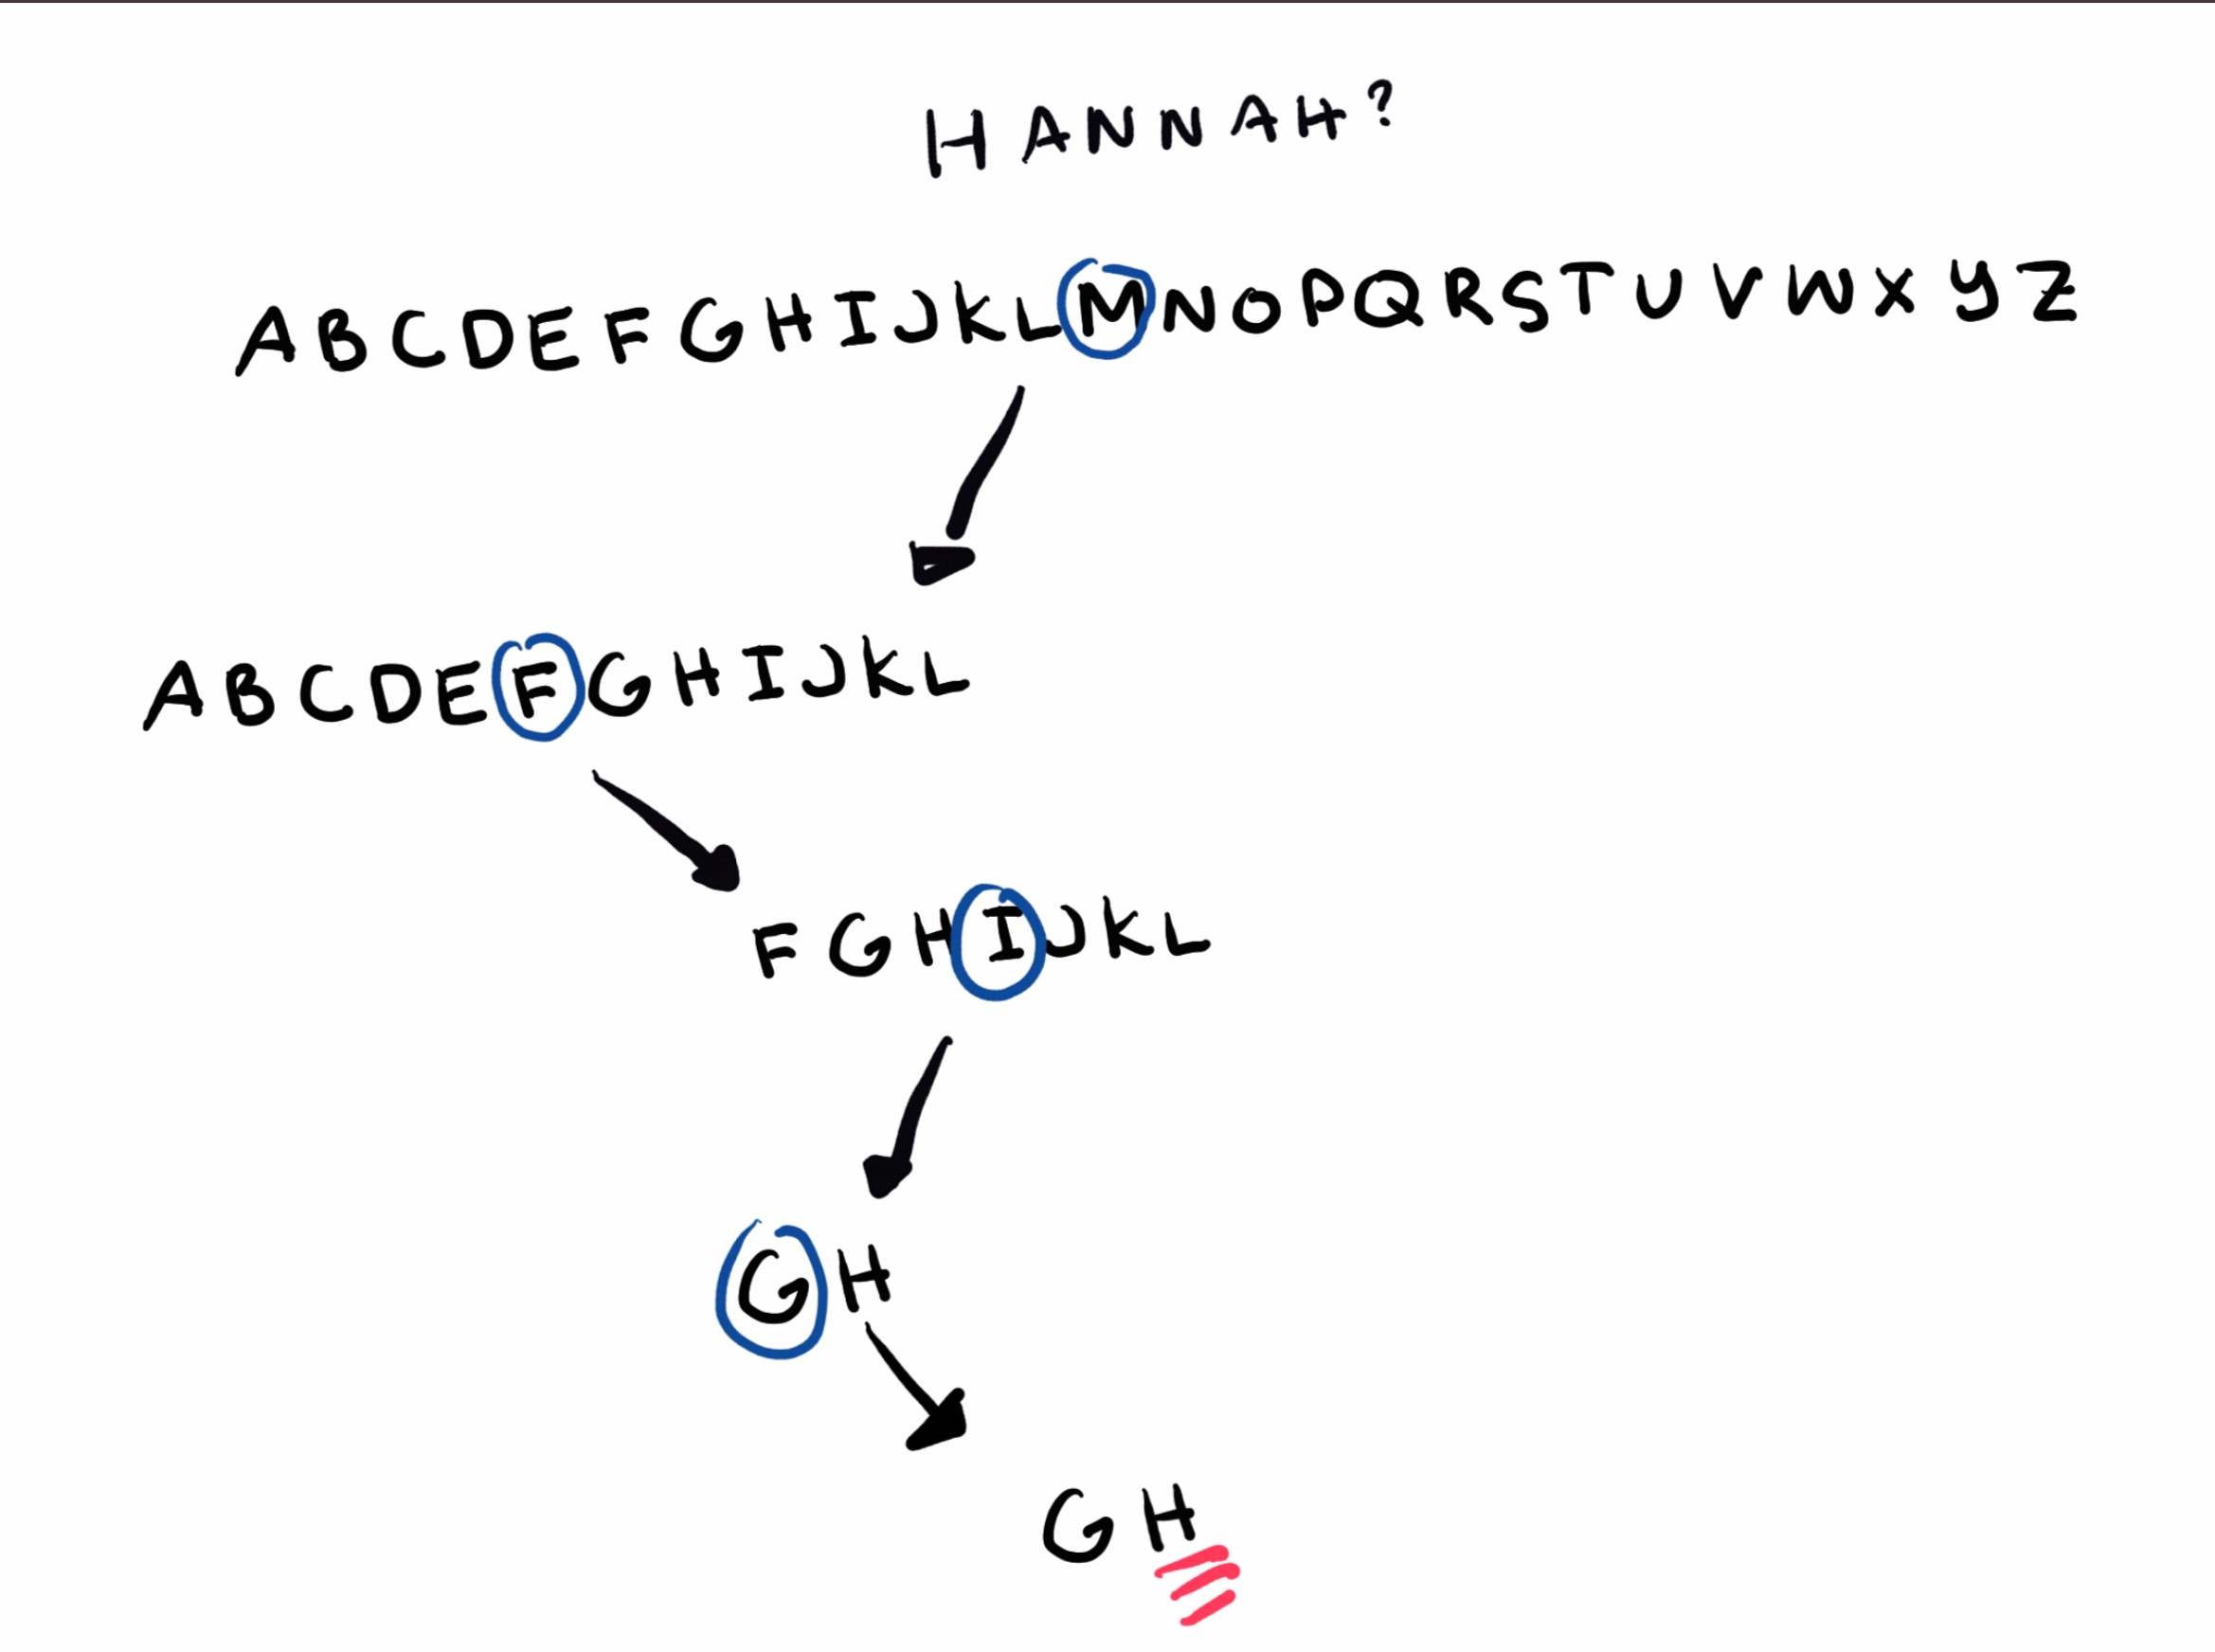 HANNAH?
ABCDEFGHIJKLMNOPQRSTUVWXYZ
ABCDEFGHIJKL
FGHIJKL
GH
GH